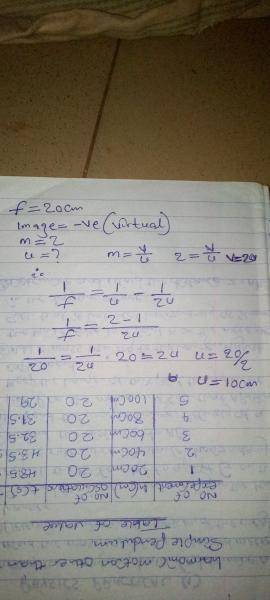 f = 20cm
image = -ve (virtual)
m = 2
u = ? m = v/u 2 = v/u v = 2u
∴
1/f = 1/u - 1/2u
1/f = 2-1/2u
1/20 = 1/2u . 20 = 2u u = 20/2
u = 10cm
harmonic motion other than
Simple pendulum.
Table of value
No of experiment h(cm) No of oscillations t(s)
1 20cm 20 48.5
2 40cm 20 43.5
3 60cm 20 32.5
4 80cm 20 31.5
5 100cm 20 29